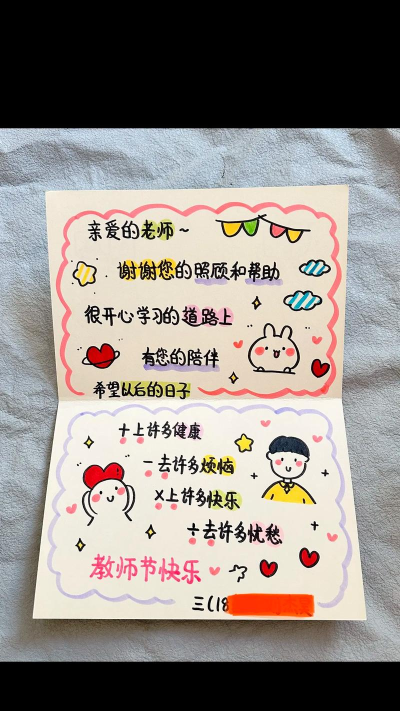 亲爱的老师~
谢谢您的照顾和帮助
很开心学习的道路上
有您的陪伴
希望以后的日子
+上许多健康
-去许多烦恼
×上许多快乐
÷去许多忧愁
教师节快乐
三(18